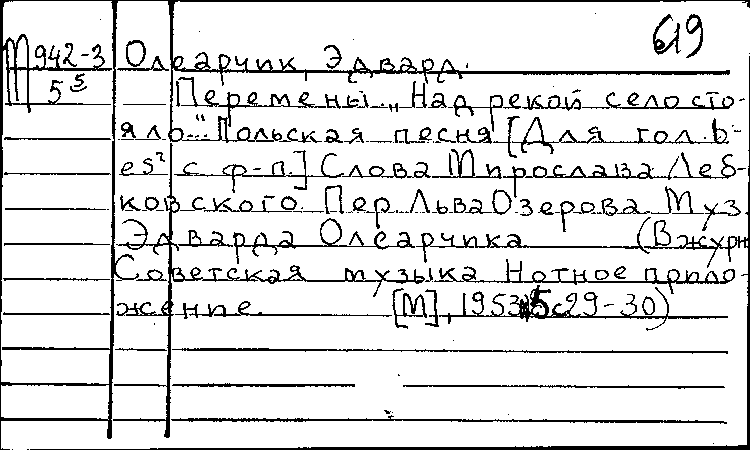 619
М942-3 Олеарчик, Эдвард.
5⁵ Перемены. „Над рекой село сто-
яло..." Польская песня [Для гол. b-
es² с ф-п.] Слова Мирослава Леб-
ковского. Пер. Льва Озерова. Муз.
Эдварда Олеарчика (В журн
Советская музыка Нотное прило-
жение. [М], 1953, 5 с 29-30)